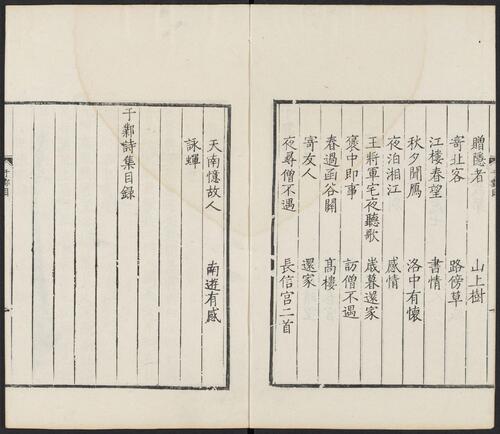 贈隱者　山上樹
寄北客　路傍草
江樓春望　書情
秋夕聞鴈　洛中有懷
夜泊湘江　感情
王將軍宅夜聽歌　歲暮還家
褒中即事　訪僧不遇
春過函谷關　高樓
寄友人　還家
夜尋僧不遇　長信宫二首
天南憶故人　南遊有感
詠蟬
于鄴詩集目録